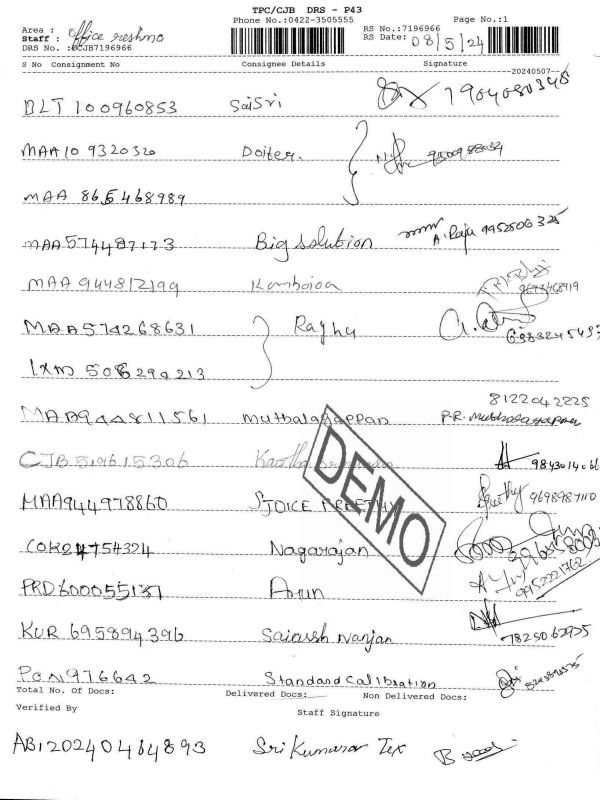 TPC/CJB DRS - P43
Phone No.:0422-3505555 Page No.:1
Area : office reshma
Staff :
DRS No. :CJB7196966
RS No.:7196966
RS Date: 08/5/24
S No Consignment No Consignee Details Signature
20240507
BLT 100960853 SaiSri 7904080348
MAA10 9320320 Doiter 9500988034
MAA 865468989
MAA574487173 Big solution A. Raju 9952506325
MAA944812199 Kamboion 9677468919
MAA574268631 Raghu
IXM 506294213
8122042225
MAA944811561 muthalagappan P.R. muthalagappan
CJB519615306 9843014066
MAA944978860 JOICE PREETHY Preethy 9698987110
COK24754324 Nagarajan
PRD600055137 Arun 9952221762
KUR 695894396 Sairassh nanjan 7825062975
PON976642 Standard Calibration
DEMO
Total No. Of Docs: Delivered Docs: Non Delivered Docs:
Verified By Staff Signature
AB120240464893 Sri Kumaran Tex